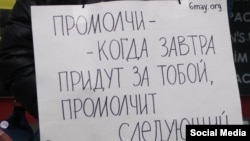 6may.org
ПРОМОЛЧИ-
-КОГДА ЗАВТРА
ПРИДУТ ЗА ТОБОЙ,
ПРОМОЛЧИТ
СЛЕДУЮЩИЙ
Social Media